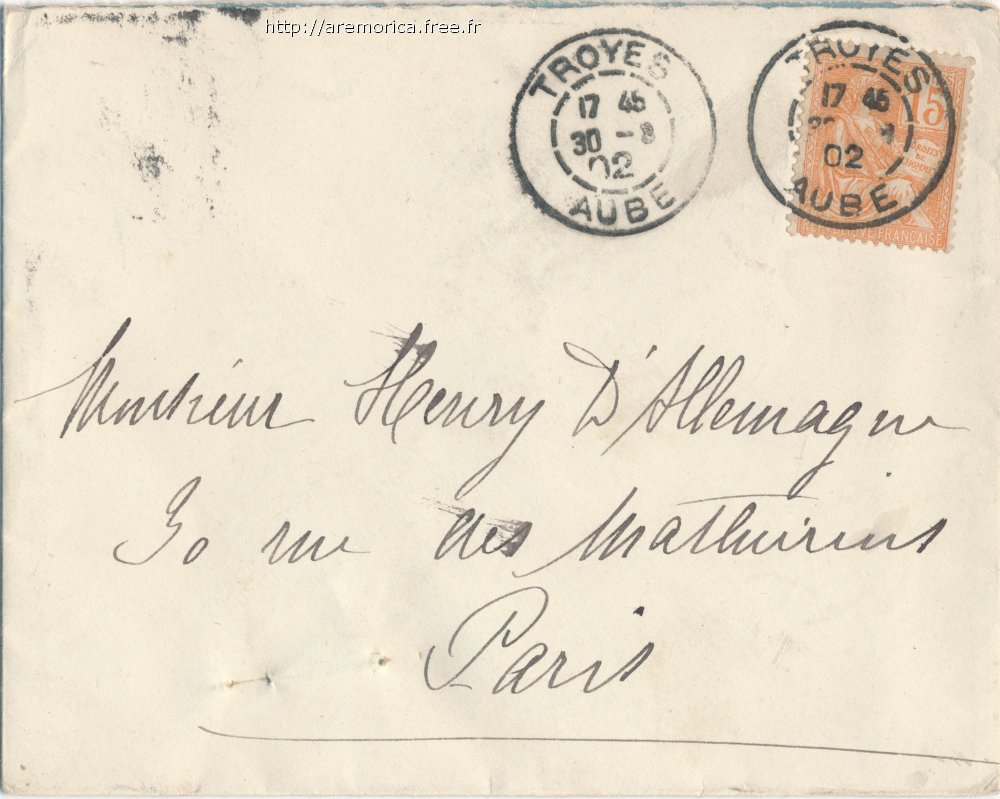 http://aremorica.free.fr
TROYES
17 45
30 - 8
02
AUBE
TROYES
17 45
02
AUBE
15
DROITS
DE
L'HOMME
REPUBLIQUE FRANÇAISE
Monsieur Henry D'Allemagne
30 rue des Mathurins
Paris